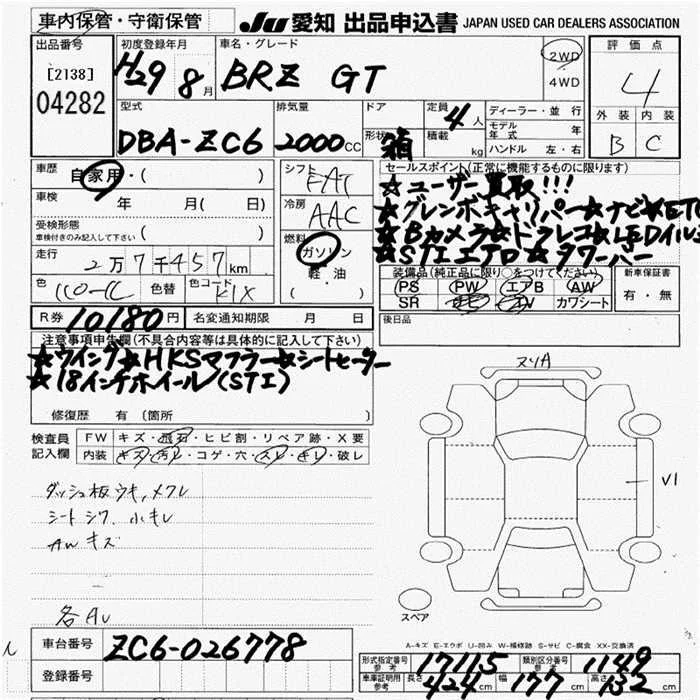 車内保管・守衛保管
JU 愛知 出品申込書 JAPAN USED CAR DEALERS ASSOCIATION
出品番号
[2138]
04282
初度登録年月
H29 8月
車名・グレード
BRZ GT
2WD
4WD
評価点
4
外装 内装
B C
型式
DBA-ZC6
排気量
2000cc
ドア
形状
箱
定員
4人
積載
kg
ディーラー・並行
モデル年式 年
ハンドル 左・右
車歴
自家用・( )
車検 年 月( 日)
受検形態
車検付きのみ記入して下さい ( )
走行
2万7千457km
色 色替 色コード
K1X
シフト
FAT
冷房
AAC
燃料
ガソリン
軽油
( )
セールスポイント(正常に機能するものに限ります)
☆ユーザー買取!!!
☆グレンボキャリパー☆ナビ☆ETC
☆Bカメラ☆ドラレコ☆LEDイルミ
☆STIエアロ☆タワーバー
装備品(純正品に限り○をつけてください)
PS PW エアB AW
SR カワシート
新車保証書
有・無
R券 10180円 名変通知期限 月 日
後日品
注意事項申告欄(不具合内容等は具体的に記入して下さい)
☆ウイング☆HKSマフラー☆シートヒーター
☆18インチホイール(STI)
修復歴 有 (箇所 )
検査員記入欄
FW キズ・飛石・ヒビ割・リペア跡・X要
内装 キズ・汚レ・コゲ・穴・スレ・キレ・破レ
ダッシュ板ウキ,メクレ
シートシワ、小キレ
AWキズ
各AU
ヌリA
V1
スペア
A-キズ E-エクボ U-凹み W-補修跡 S-サビ C-腐食 XX-交換済
車台番号 ZC6-026778
登録番号
形式指定番号 参考 17115 類別区分番号 参考 1149
車庫証明用 参考 長さ 424cm 幅 177cm 高さ 132cm